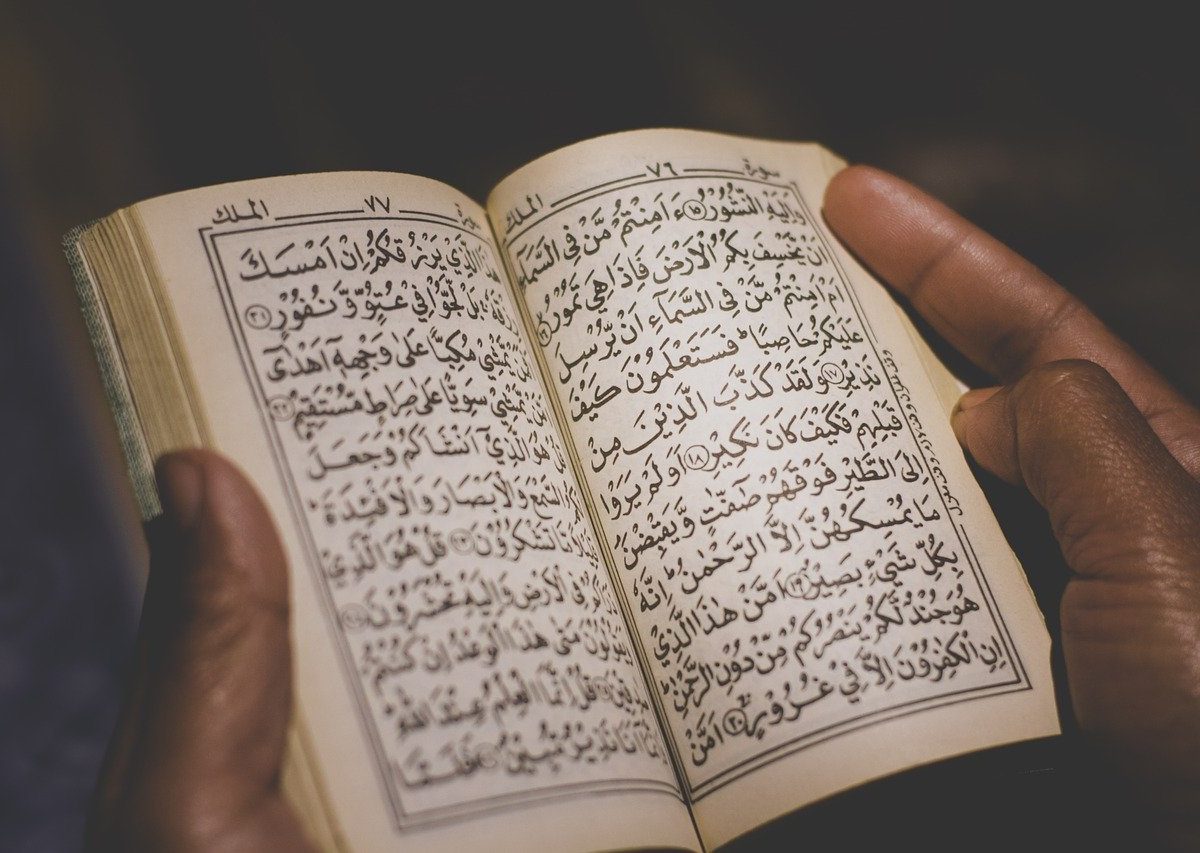 سورة ٧٦ الملك
وَاِلَيْهِ النُّشُوْرُ ١٥ ءَاَمِنْتُمْ مَّنْ فِى السَّمَآءِ
اَنْ يَّخْسِفَ بِكُمُ الْاَرْضَ فَاِذَا هِيَ تَمُوْرُ ١٦
اَمْ اَمِنْتُمْ مَّنْ فِى السَّمَآءِ اَنْ يُّرْسِلَ
عَلَيْكُمْ حَاصِبًا ؕ فَسَتَعْلَمُوْنَ كَيْفَ
نَذِيْرِ ١٧ وَلَقَدْ كَذَّبَ الَّذِيْنَ مِنْ
قَبْلِهِمْ فَكَيْفَ كَانَ نَكِيْرِ ١٨ اَوَلَمْ يَرَوْا
اِلَى الطَّيْرِ فَوْقَهُمْ صٰٓفّٰتٍ وَّيَقْبِضْنَ
مَا يُمْسِكُهُنَّ اِلَّا الرَّحْمٰنُ ؕ اِنَّهٗ
بِكُلِّ شَيْءٍۭ بَصِيْرٌ ١٩ اَمَّنْ هٰذَا الَّذِيْ
هُوَ جُنْدٌ لَّكُمْ يَنْصُرُكُمْ مِّنْ دُوْنِ الرَّحْمٰنِ ؕ
اِنِ الْكٰفِرُوْنَ اِلَّا فِيْ غُرُوْرٍ ٢٠ اَمَّنْ
سورة ٧٧ الملك
هٰذَا الَّذِيْ يَرْزُقُكُمْ اِنْ اَمْسَكَ
رِزْقَهٗ بَلْ لَّجُّوْا فِيْ عُتُوٍّ وَّنُفُوْرٍ ٢١
يَّمْشِيْ مُكِبًّا عَلٰى وَجْهِهٖٓ اَهْدٰٓى
يَّمْشِيْ سَوِيًّا عَلٰى صِرَاطٍ مُّسْتَقِيْمٍ ٢٢
هُوَ الَّذِيْٓ اَنْشَاَكُمْ وَجَعَلَ
السَّمْعَ وَالْاَبْصَارَ وَالْاَفْـِٕدَةَ
قَلِيْلًا مَّا تَشْكُرُوْنَ ٢٣ قُلْ هُوَ الَّذِيْ
فِى الْاَرْضِ وَاِلَيْهِ تُحْشَرُوْنَ ٢٤
وَيَقُوْلُوْنَ مَتٰى هٰذَا الْوَعْدُ اِنْ كُنْتُمْ
قُلْ اِنَّمَا الْعِلْمُ عِنْدَ اللّٰهِ
اَنَا نَذِيْرٌ مُّبِيْنٌ ٢٦ فَلَمَّا